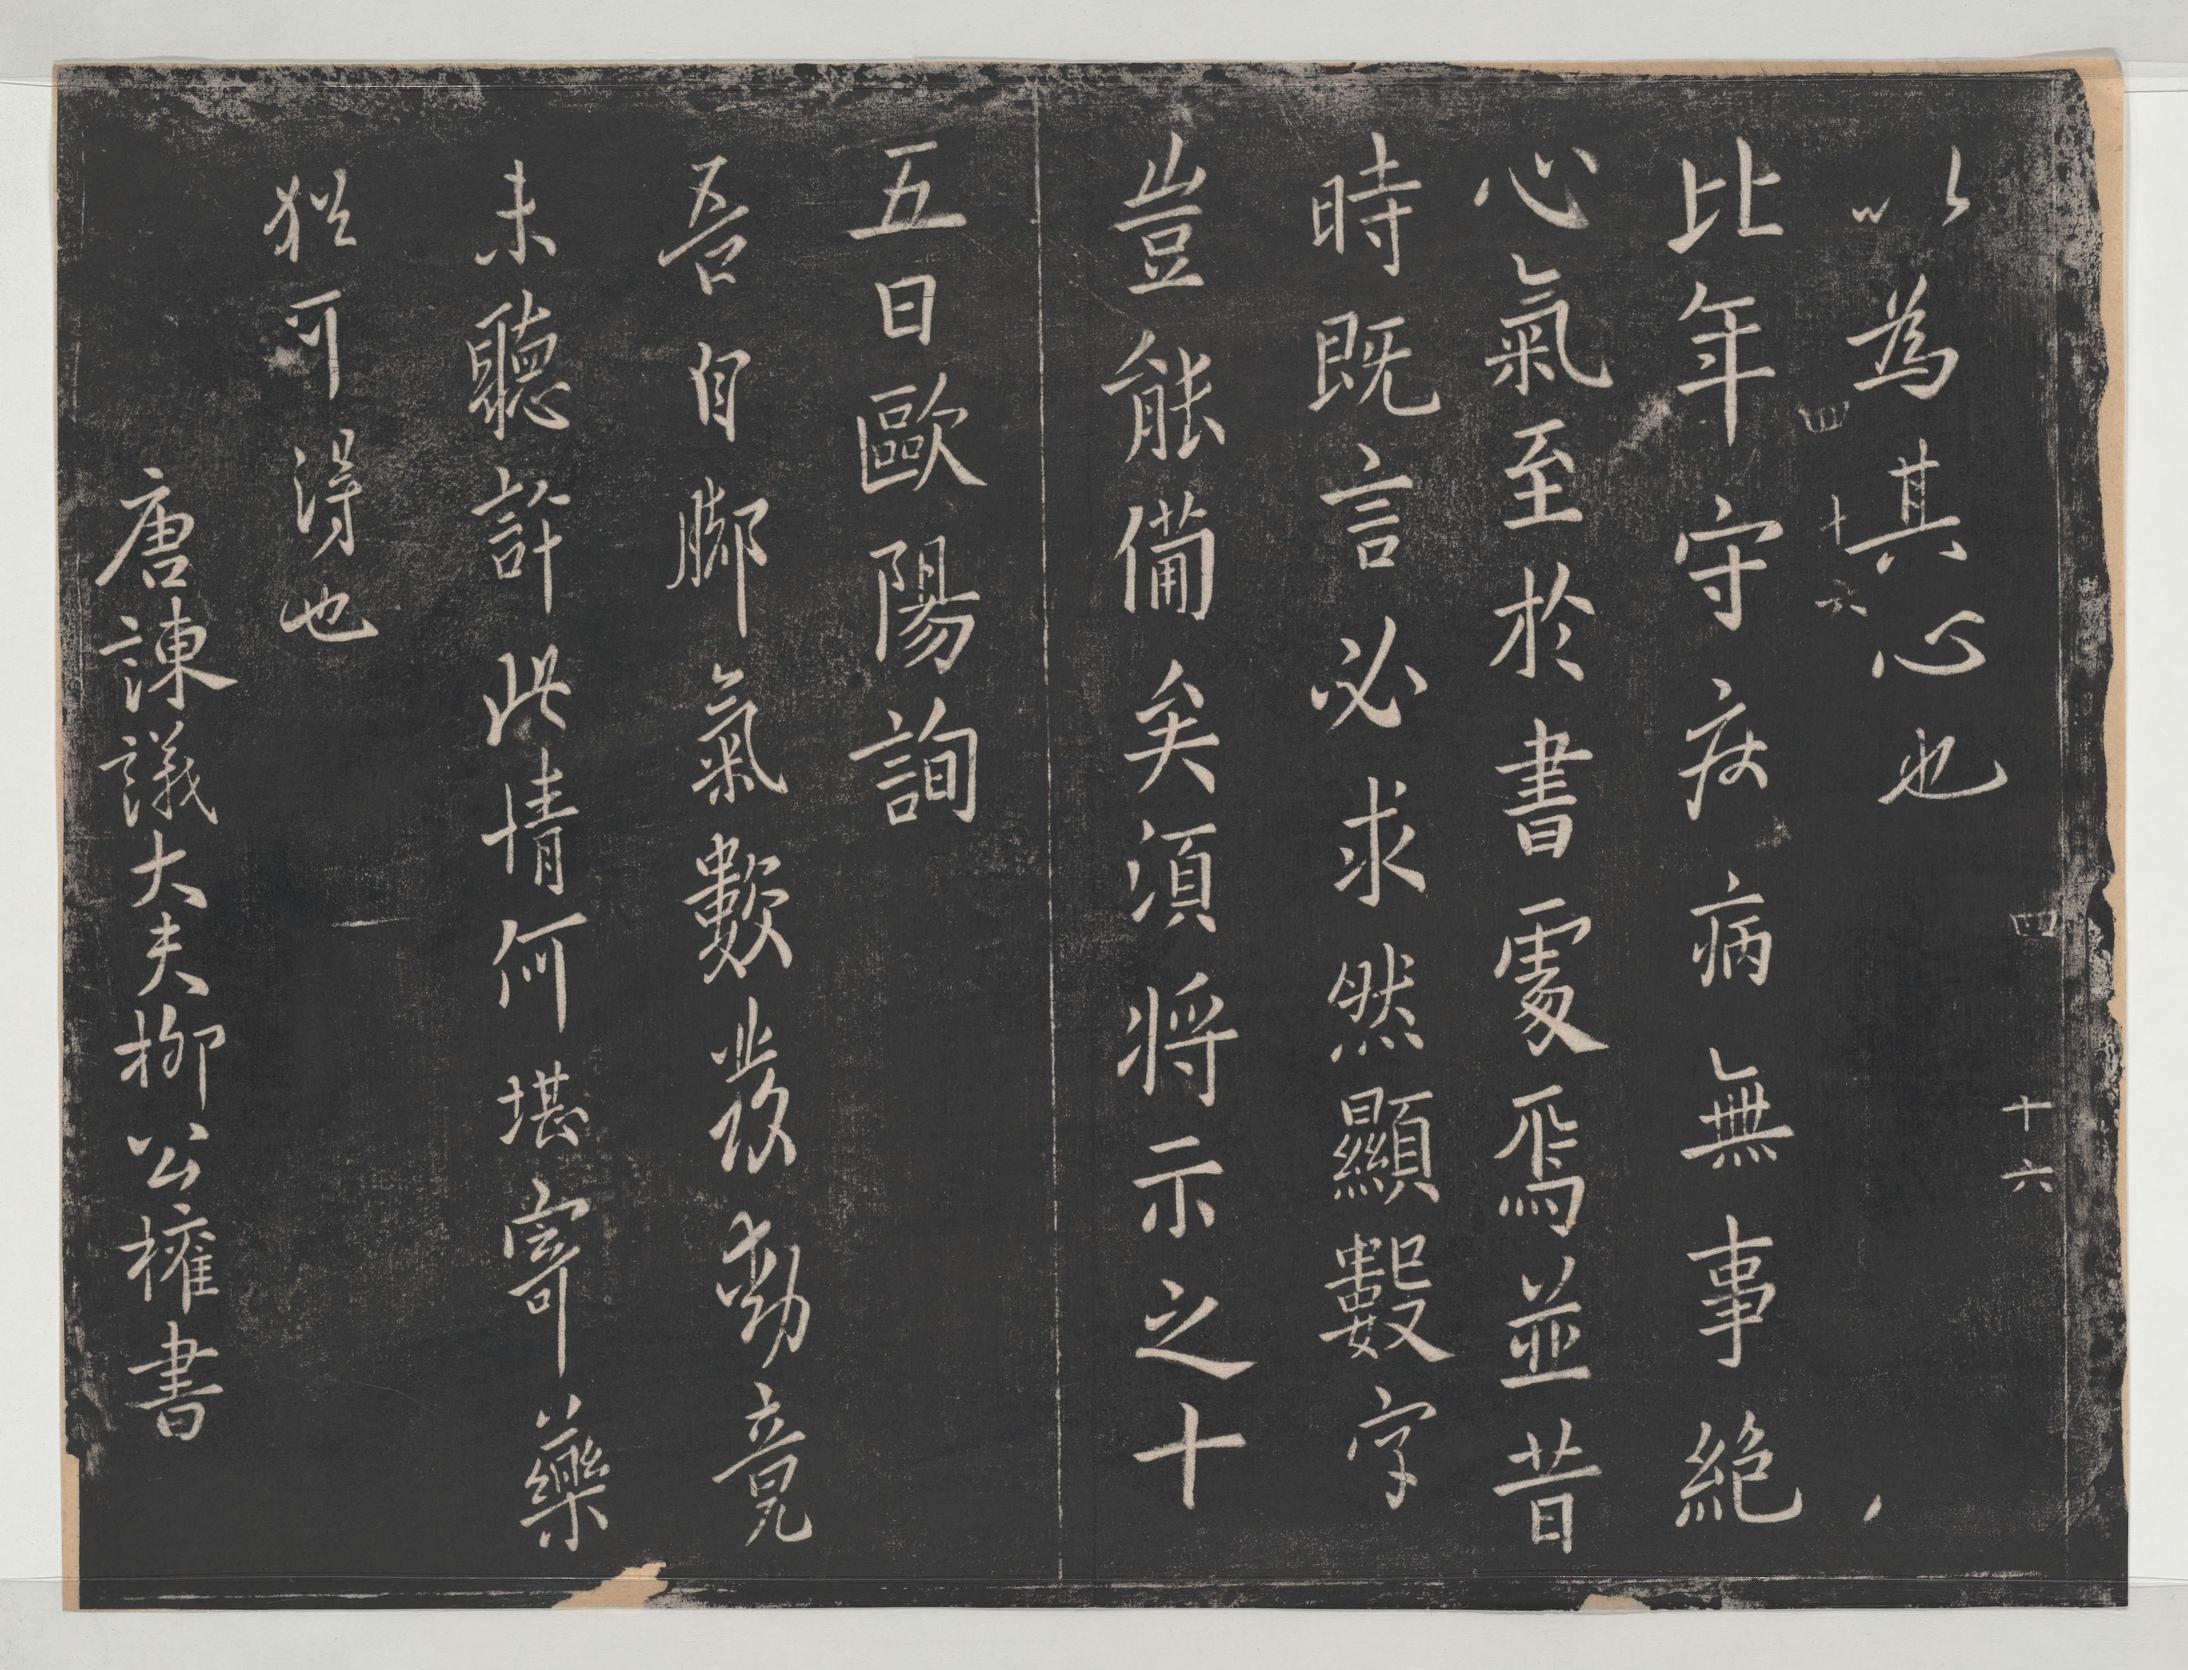 四 十六
以為其心也
四 十六
比年守疾病無事絶
心氣至於書處焉並昔
時既言必求然顯數字
豈能備矣須將示之十
五日歐陽詢
吾自腳氣數發動竟
未聽許此情何堪寄藥
猶可得也
唐諫議大夫柳公權書